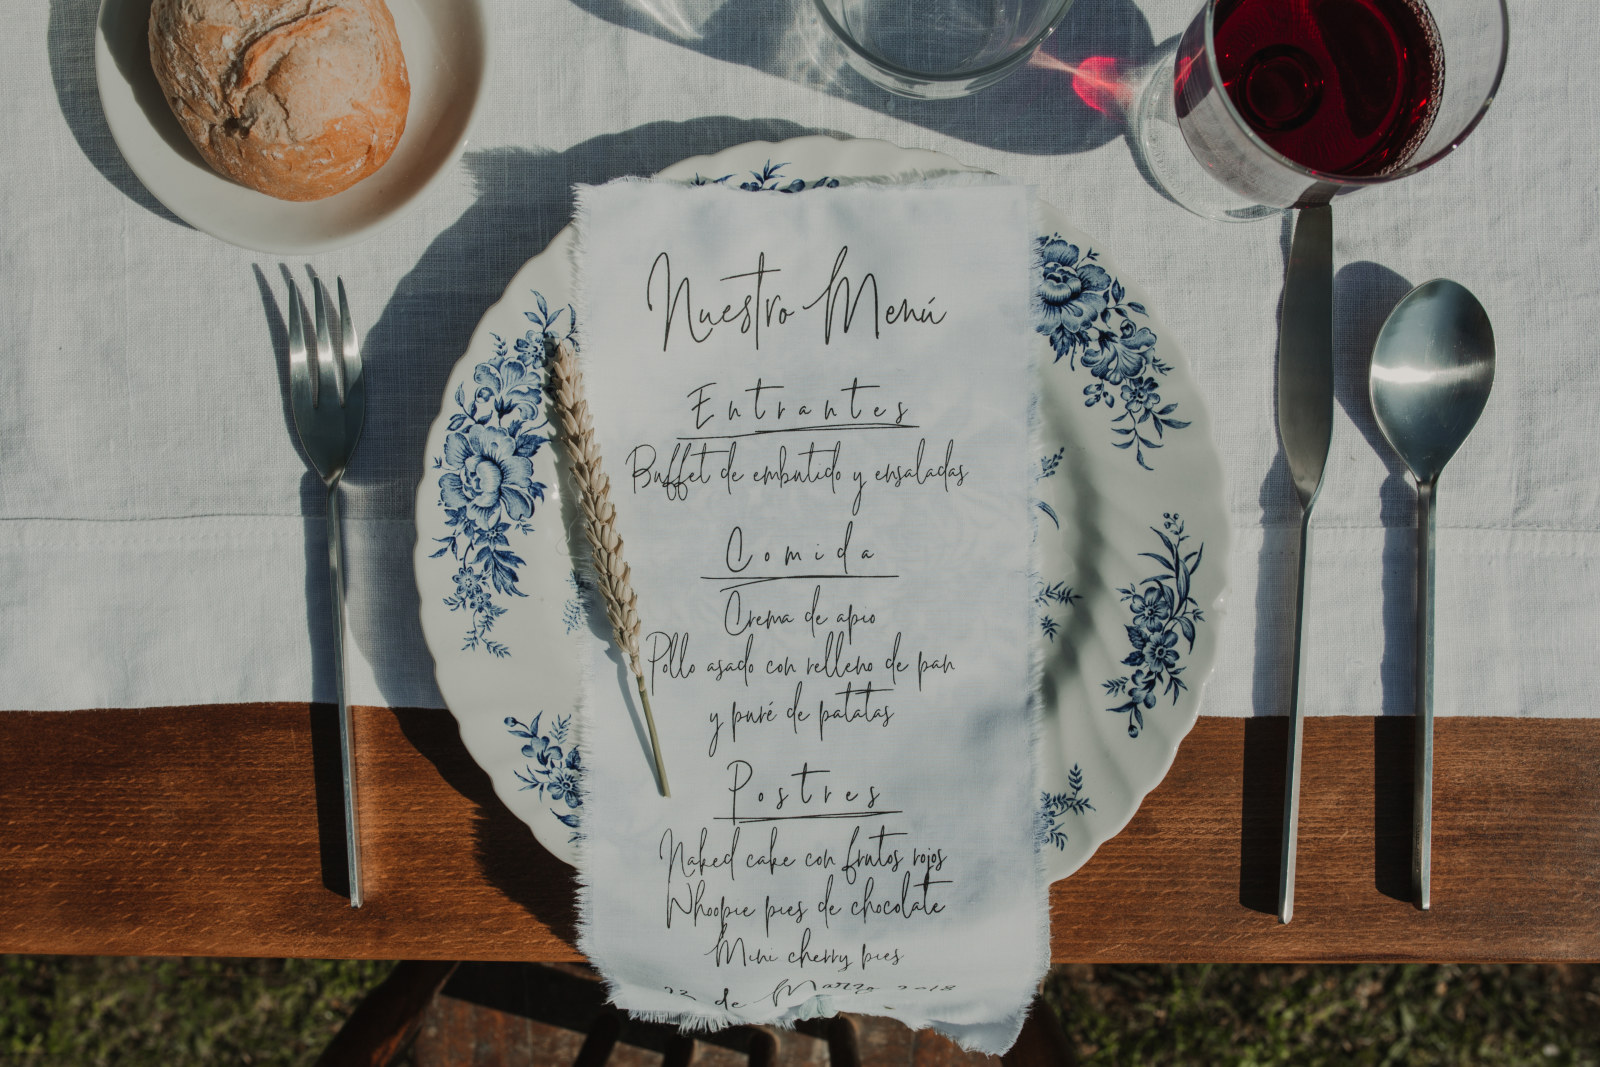 Nuestro Menú
Entrantes
Buffet de embutido y ensaladas
Comida
Crema de apio
Pollo asado con relleno de pan
y puré de patatas
Postres
Naked cake con frutos rojos
Whoopie pies de chocolate
Mini cherry pies
de Marzo 2018